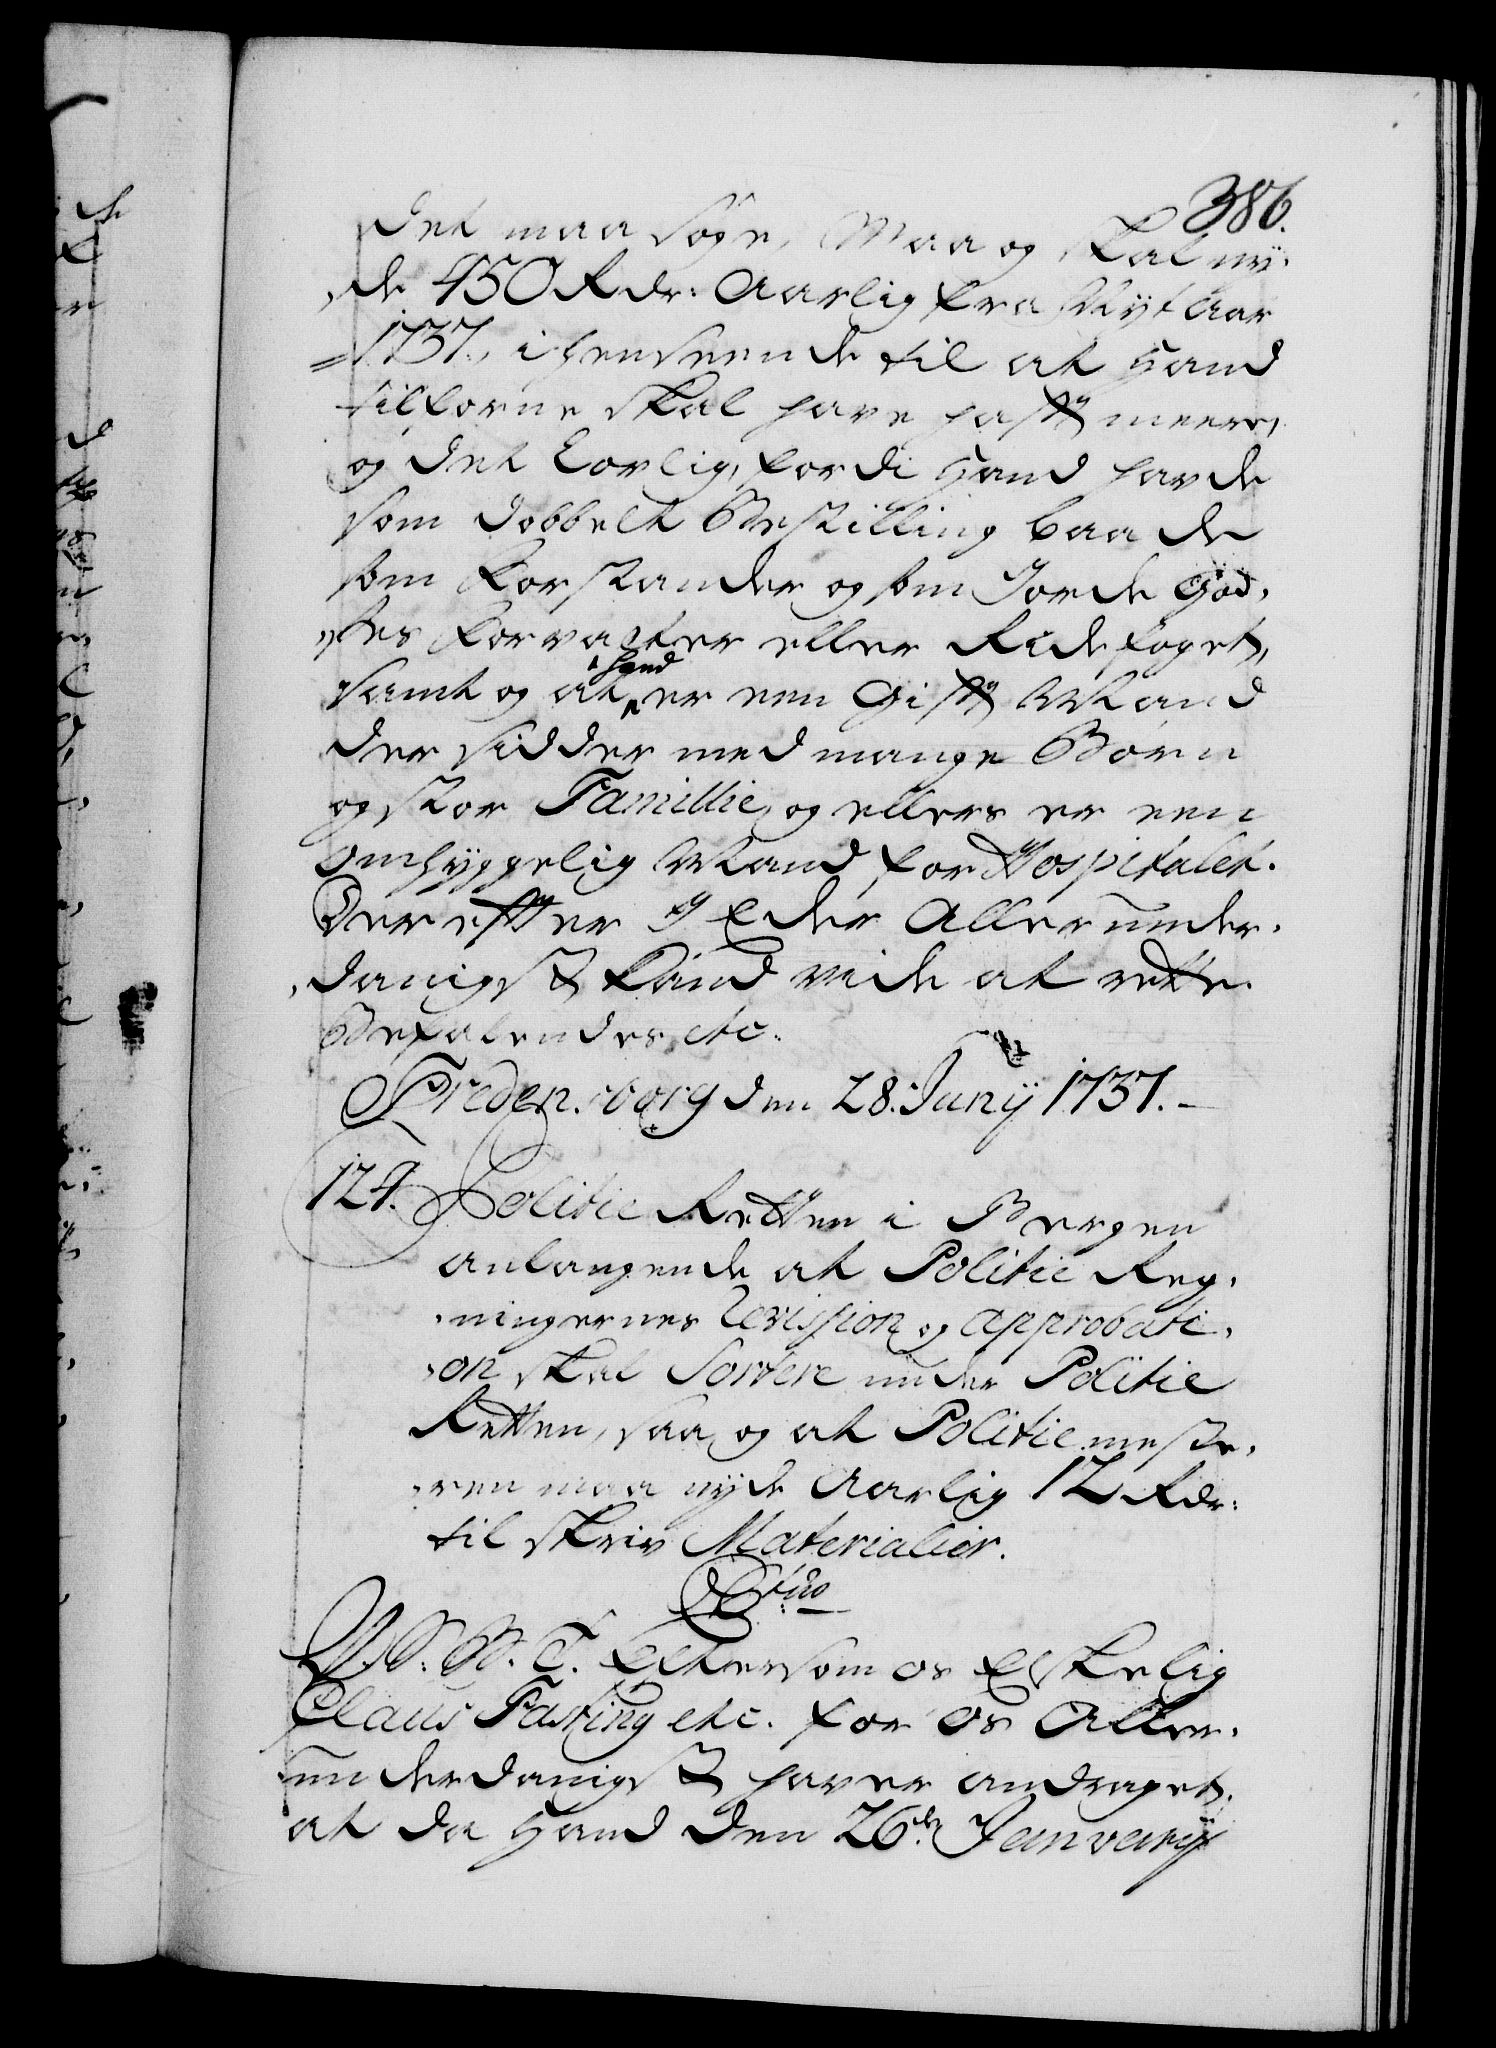 386.
det maa søge, Maa og skal ny-
de 450 Rdr: Aarlig fra Nytaar
1737., i henseende til at Hand
tilforne skal have hafft meere,
og det Lovlig, fordi Hand havde
som dobbelt Bestilling baade
som Forstander og som Jorde God,
ses Forvalter eller Ridefoget,
samt og at hand er een Gifft Mand
der sidder med mange Børn
og stor Famillie, og ellers er een
omhyggelig Mand for Hospitalet.
Derefter I Eder Allerunder,
danigst kand vide at rette.
Befalendes etc.
Fredensborg den 28. Juny 1737.
124. Politie Retten i Bergen
anlangende at Politie Reg,
ningernes Revission og approbati,
on skal Sortere under Politie
Retten, saa og at Politiemeste,
ren maa nyde Aarlig 12 Rdr:
til Skriv Materialier.
C. 6tus
V. S. B. T. Eftersom os Elskelig
Claus Fasting etc. for os Aller,
underdanigst haver andraget,
at da Hand den 26de Janvary